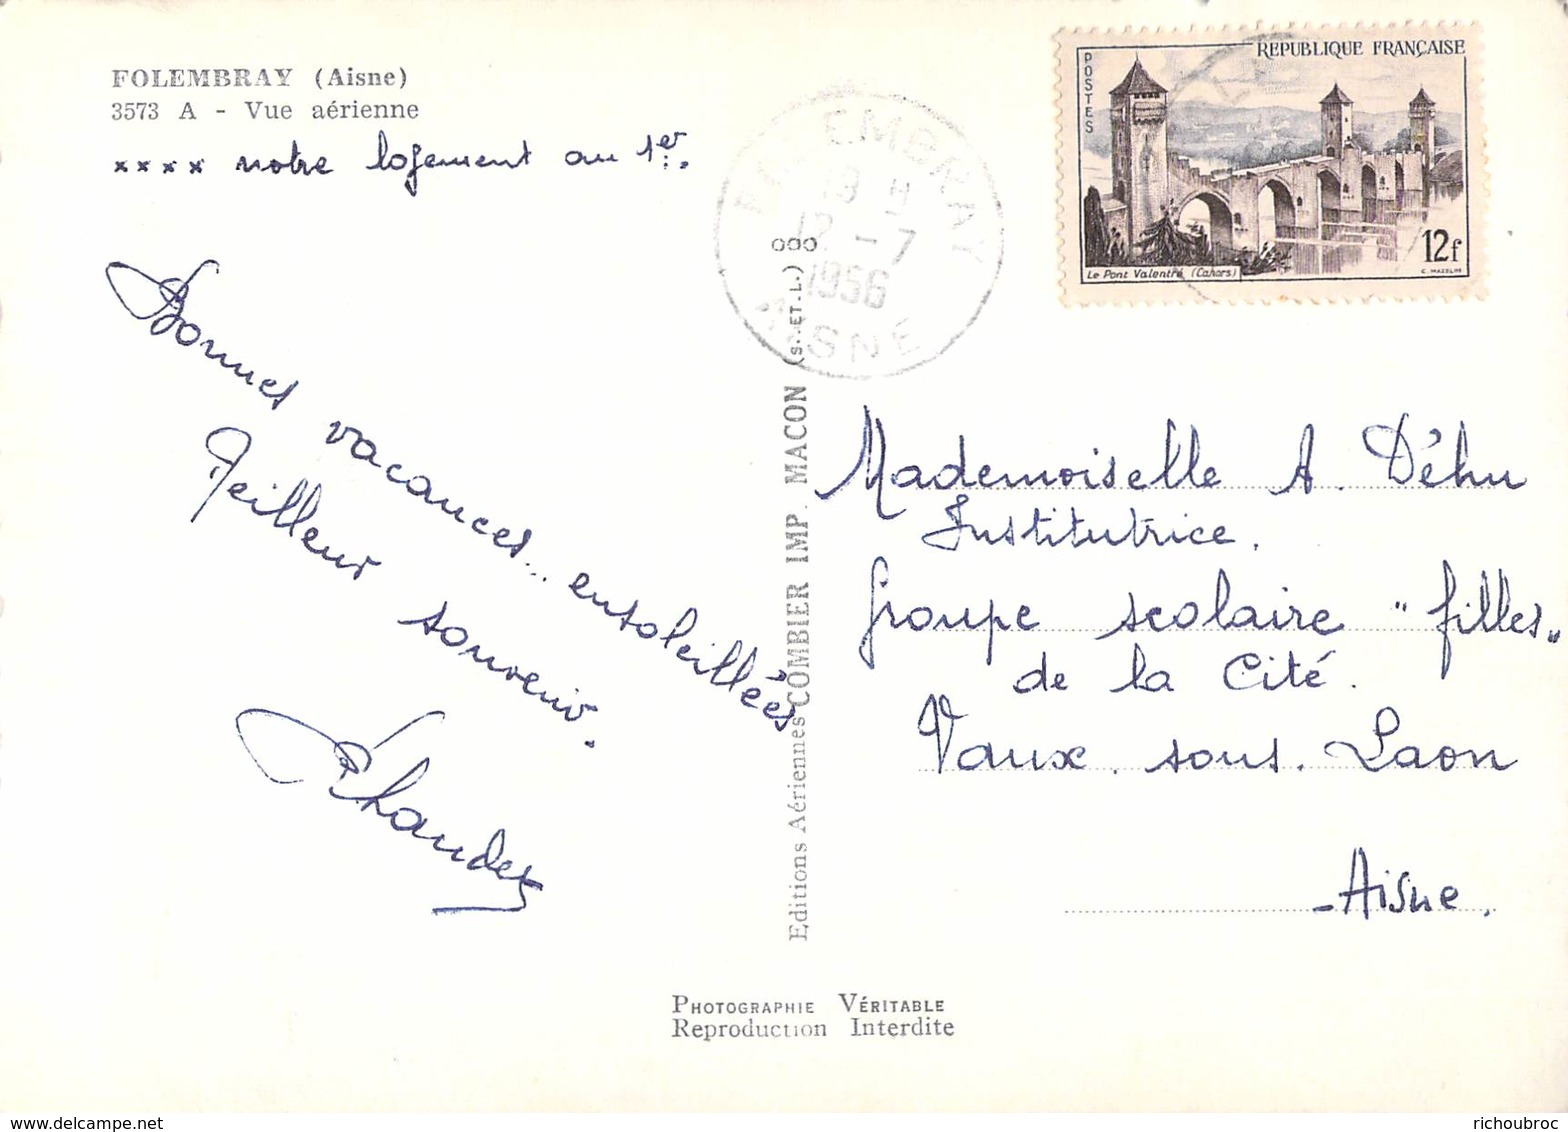 FOLEMBRAY (Aisne)
3573 A - Vue aérienne
xxxx notre logement au 1er.
Bonnes vacances... ensoleillées
Meilleur souvenir.
FOLEMBRAY
12 - 7
1956
AISNE
REPUBLIQUE FRANÇAISE
POSTES
Le Pont Valentré (Cahors)
12f
C. MAZELIN
Editions Aériennes COMBIER IMP. MACON (S.-ET-L.) ooo
Mademoiselle A. Déhu
Institutrice.
Groupe scolaire "filles"
de la Cité.
Vaux. sous. Laon
- Aisne.
PHOTOGRAPHIE VÉRITABLE
Reproduction Interdite
delcampe.net
richoubroc